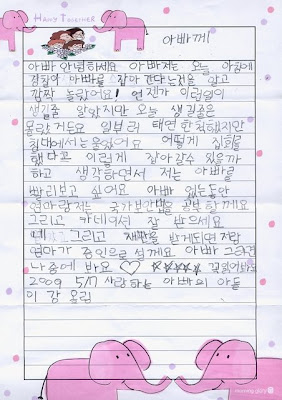 HAPPY TOGETHER
아빠께!
아빠 안녕하세요 아빠저는 오늘 아침에
경찰이 아빠를 잡아 간다는것을 알고
깜짝 놀랐어요! 언젠가 이런일이
생길줄 알았지만 오늘 생길줄은
몰랐거든요 일부러 태연한척했지만
침대에서는울었어요 어떻게 집회를
했다고 이렇게 잡아갈수 있을까
하고 생각하면서 저는 아빠를
빨리보고 싶어요 아빠 없는동안
엄마랑저는 국가보안법을 공부 할께요
그리고 카네이션 잘 받으세요
그리고 재판을 받게되면 저랑
엄마가 증인으로 설께요 아빠 그러면
나중에 봐요 ♡
2009 5/7 사랑하는 아빠의 아들
이 강 올림